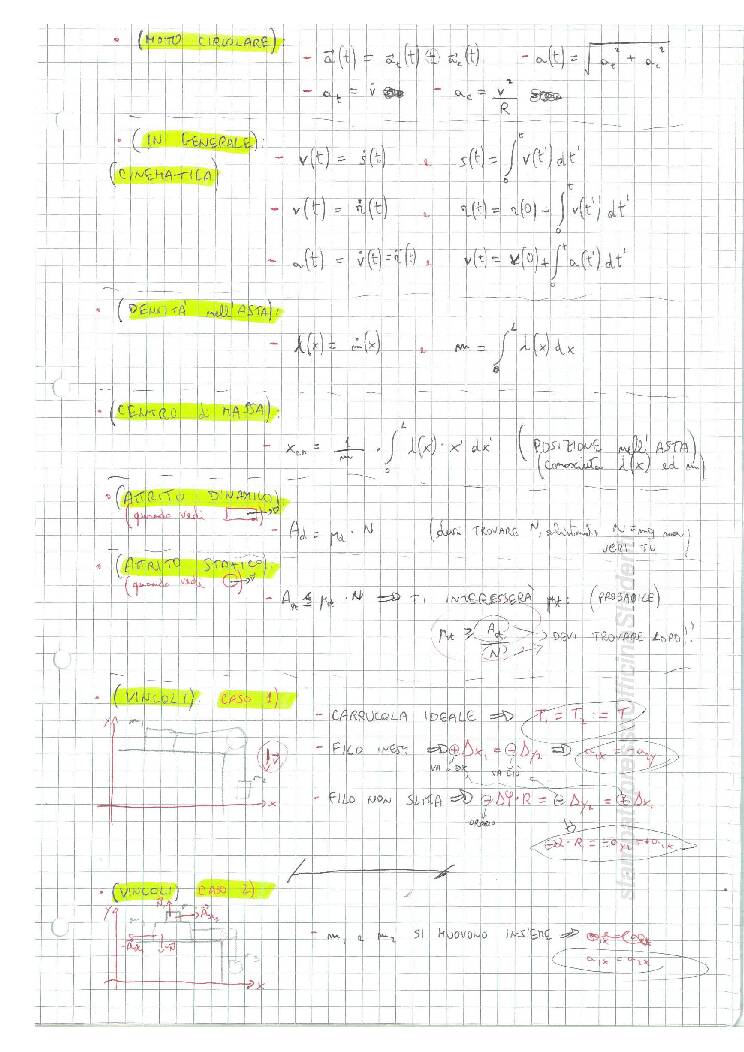 • (MOTO CIRCOLARE):
- a⃗(t) = a⃗t(t) + a⃗c(t) - a(t) = √(at² + ac²)
- at = v̇ - ac = v²/R
• (IN GENERALE):
(CINEMATICA)
- v(t) = ṡ(t) , s(t) = ∫₀ᵗ v(t') dt'
- v(t) = ṙ(t) , r(t) = r(0) - ∫₀ᵗ v(t') dt'
- a(t) = v̇(t) = r̈(t) , v(t) = v(0) + ∫₀ᵗ a(t') dt'
• (DENSITÀ nell'ASTA):
- λ(x) = ṁ(x) , m = ∫₀ᴸ λ(x) dx
• (CENTRO di MASSA):
- xcm = 1/m · ∫₀ᴸ λ(x') · x' dx' (POSIZIONE nell'ASTA)
(conosciuta λ(x) ed m)
• (ATTRITO DINAMICO)
(quando vedi
- Ad = μd · N (devi TROVARE N, N = mg ma
• (ATTRITO STATICO)
(quando vedi
- As ≤ μs · N ⇒ TI INTERESSERÀ μs: (PROBABILE)
μs ≥ As/N DEVI TROVARE LORO!!
• (VINCOLI) CASO 1)
- CARRUCOLA IDEALE ⇒ T₁ = T₂ := T
- FILO INES. ⇒ ⊕Δx₁ = ⊖Δy₂ ⇒ a₁x = -a₂y
VA DX VA GIÙ
- FILO NON SLITTA ⇒ ⊖Δφ·R = ⊖Δy₂ = ⊕Δx₁
ORARIO
• (VINCOLI) CASO 2)
- m₁ e m₂ SI MUOVONO INSIEME ⇒
a₁x = a₂x